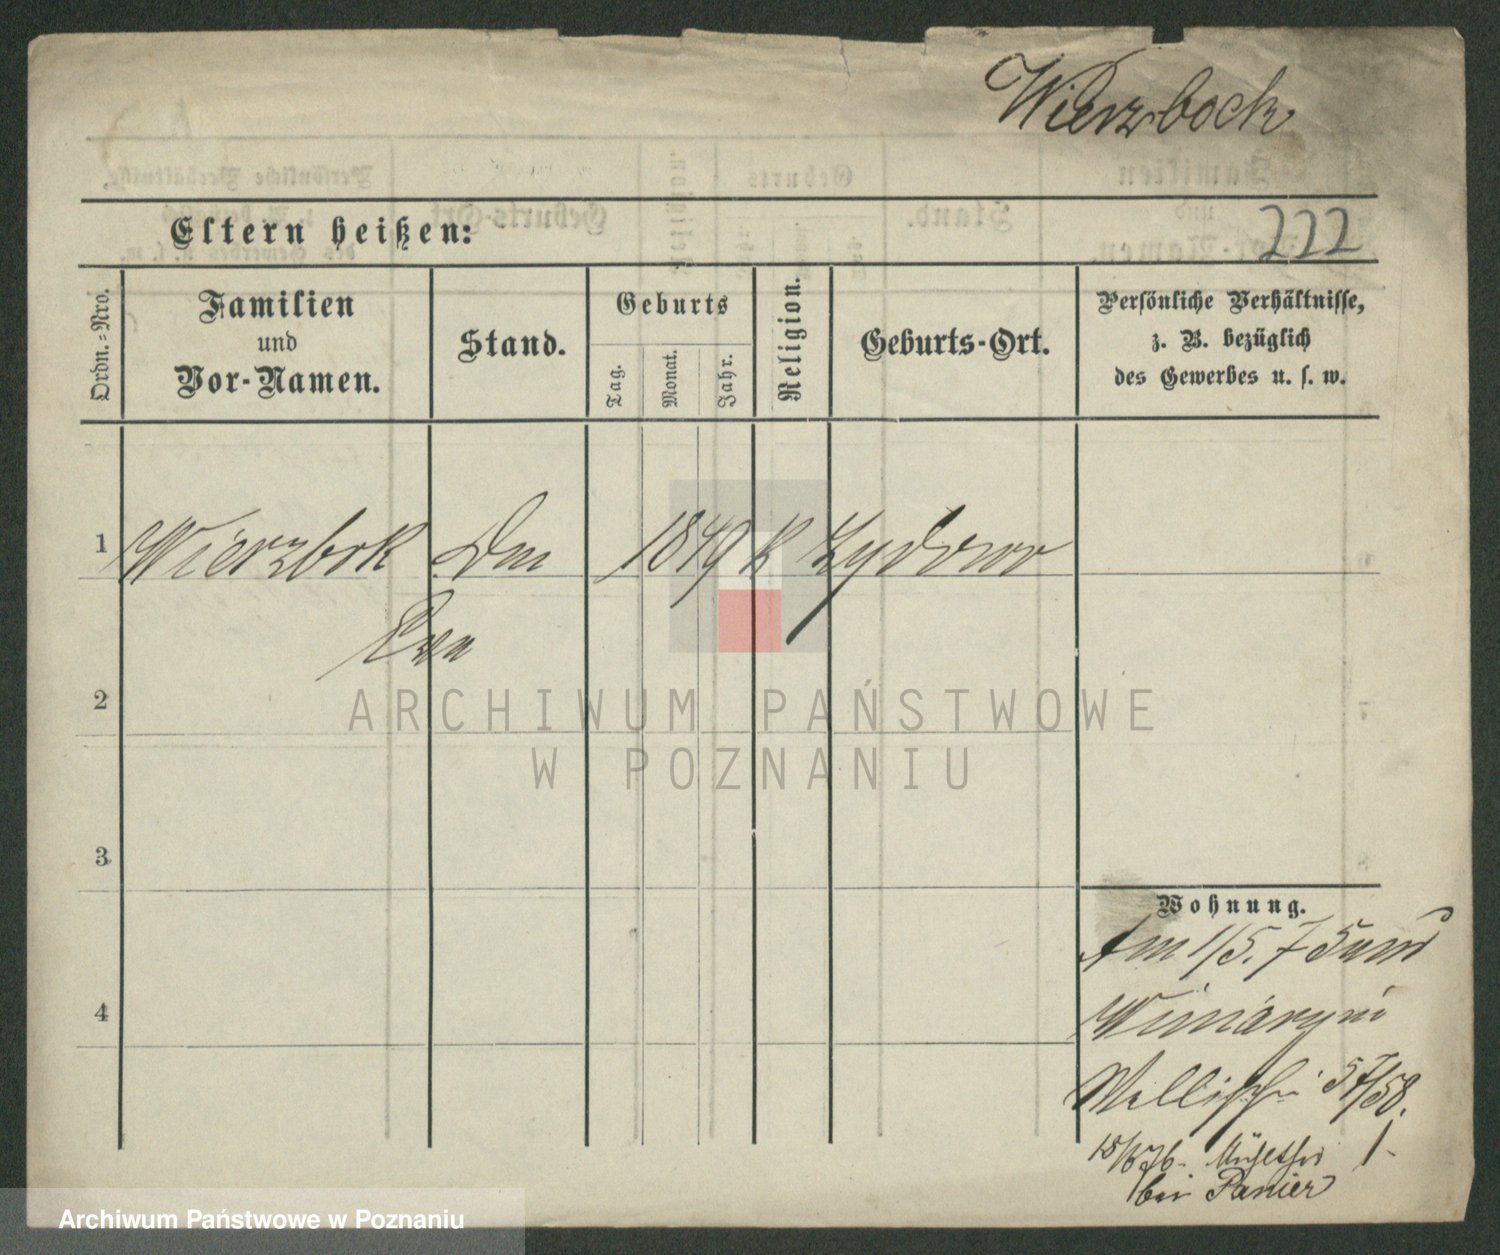 Wierzbock
222
Eltern heißen:
Ordn.-Nro.
Familien
und
Vor-Namen.
Stand.
Geburts
Tag.
Monat.
Jahr.
Religion.
Geburts-Ort.
Persönliche Verhältnisse,
z. B. bezüglich
des Gewerbes u. s. w.
1 Wierzbok 1849 K Zydowo
Eva
2
3
4
Wohnung.
57/58.
bei Panier
ARCHIWUM PAŃSTWOWE
W POZNANIU
Archiwum Państwowe w Poznaniu